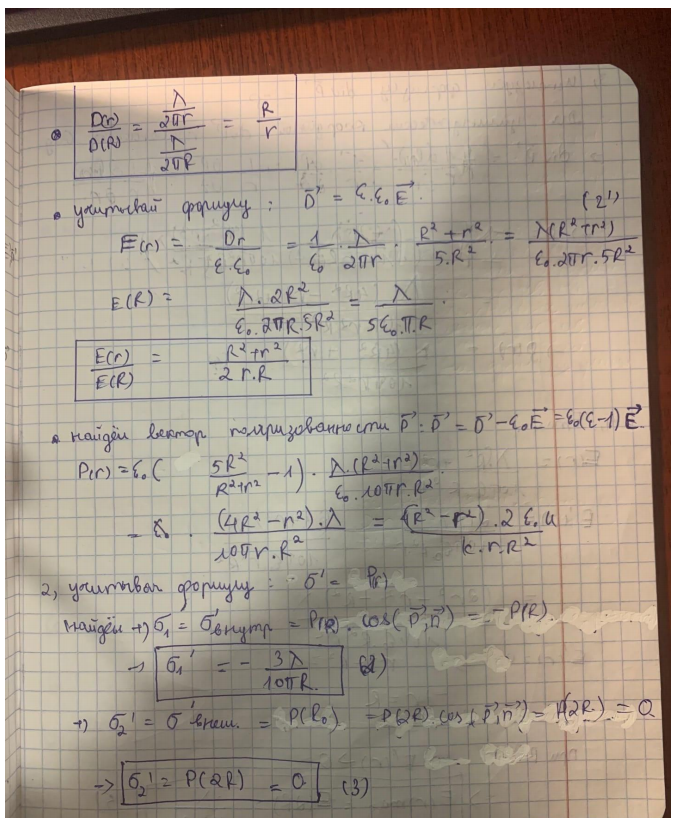 • D(r)/D(R) = (λ/2πr)/(λ/2πR) = R/r
• учитывай формулу : D⃗ = ε.ε₀E⃗. (2')
E(r) = Dr/(ε.ε₀) = 1/ε₀ . λ/2πr . (R²+r²)/(5.R²) = λ(R²+r²)/(ε₀.2πr.5R²)
E(R) = λ.2R²/(ε₀.2πR.5R²) = λ/(5ε₀.π.R) .
E(r)/E(R) = (R²+r²)/(2r.R) .
• найдём вектор поляризованности P⃗ : P⃗ = D⃗ - ε₀E⃗ = ε₀(ε-1)E⃗.
P(r) = ε₀( 5R²/(R²+r²) - 1) . λ.(R²+r²)/(ε₀.10πr.R²)
= . (4R²-r²).λ/(10πr.R²) = (R²-r²).2ε.u/(k.r.R²)
2, учитывая формулу : σ' = P(r)
найдём → σ₁ = σ'внутр = P(R) . cos(P⃗,n⃗) = -P(R).
→ σ₁' = - 3λ/(10πR.)
→ σ₂' = σ'внеш. = P(R₀) = P(2R) cos(P⃗,n⃗) = P(2R) = 0
→ σ₂' = P(2R) = 0 , (3)